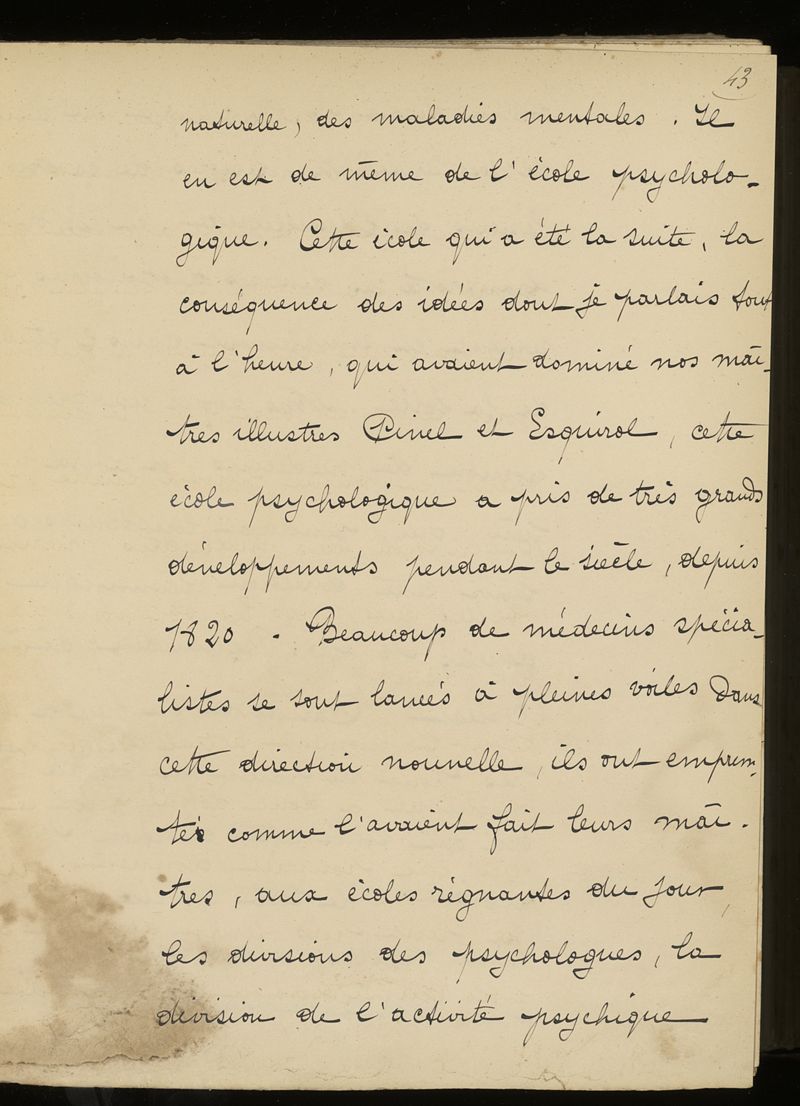 43
naturelle, des maladies mentales. Il
en est de même de l'école psycholo-
gique. Cette école qui a été la suite, la
conséquence des idées dont je parlais tout
à l'heure, qui avaient dominé nos maî-
tres illustres Pinel et Esquirol, cette
école psychologique a pris de très grands
développements pendant le siècle, depuis
1820 - Beaucoup de médecins spécia-
listes se sont lancés à pleines voiles dans
cette direction nouvelle, ils ont emprun-
té comme l'avaient fait leurs maî-
tres, aux écoles régnantes du jour,
les divisions des psychologues, la
division de l'activité psychique